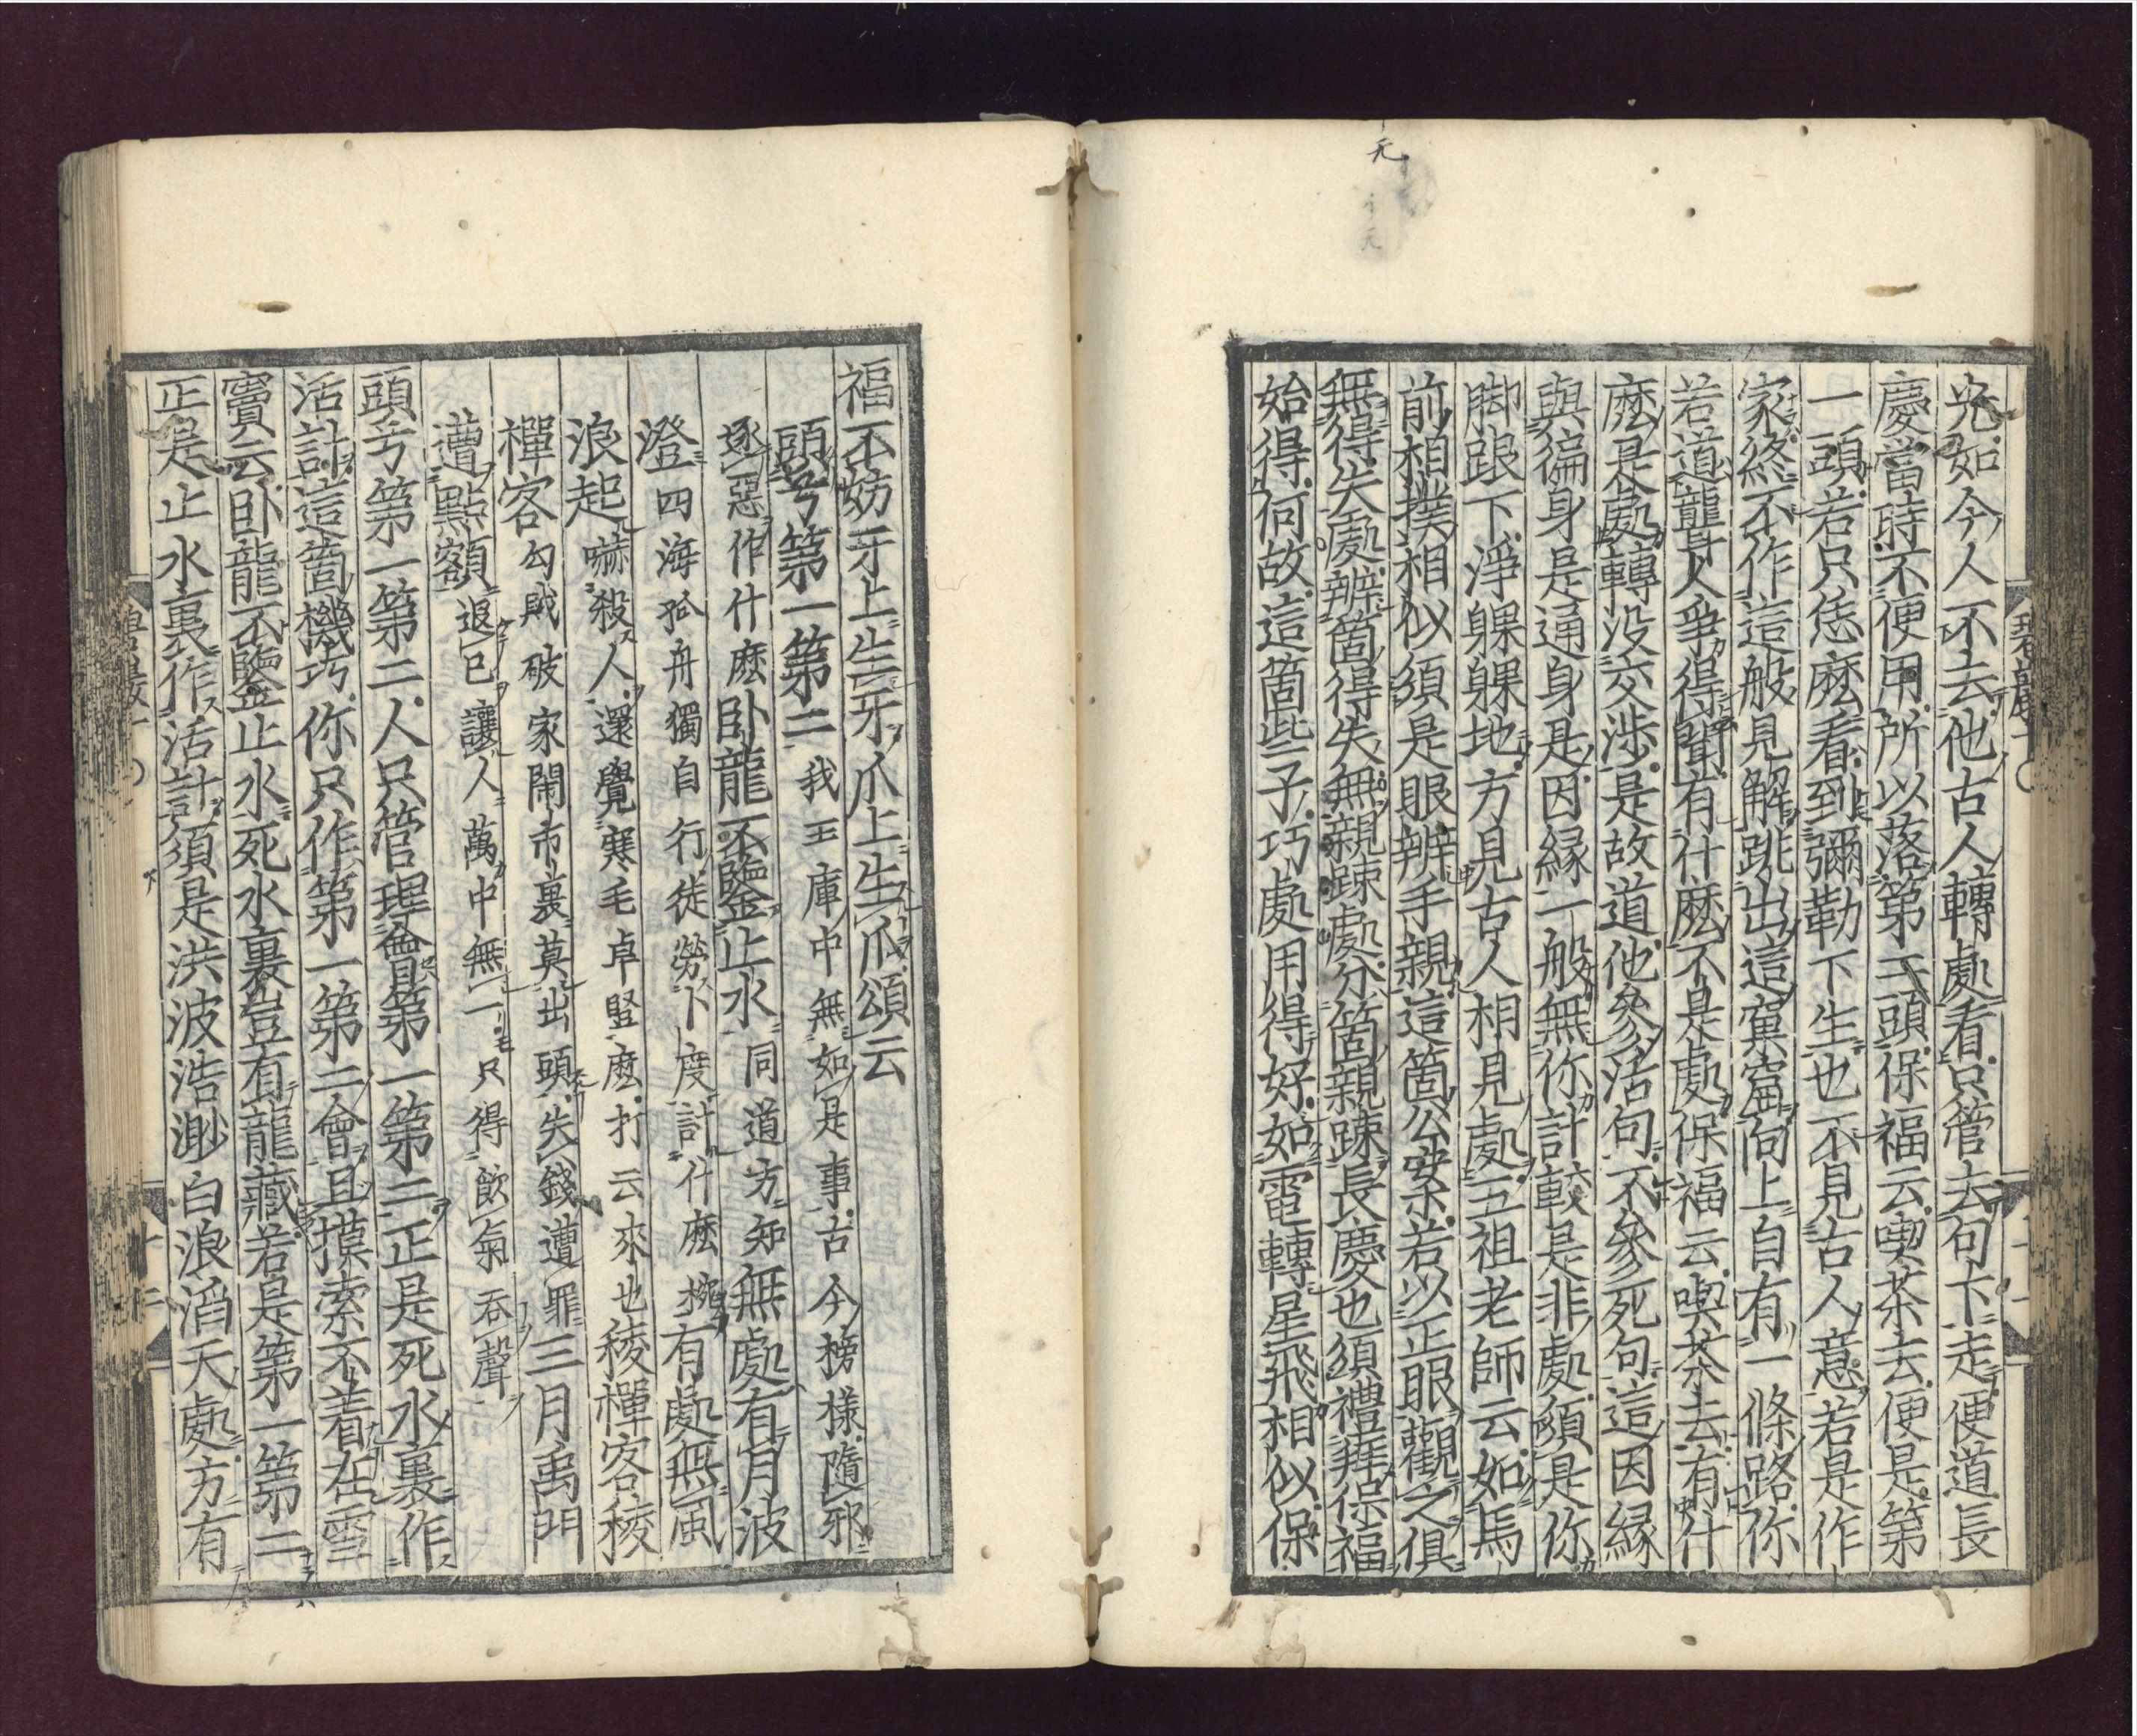 兔如今人不去他古人轉處看只管去句下走便道長
慶當時不便用所以落第二頭保福云喫茶去便是第
一頭若只恁麼看到彌勒下生也不見古人意若是作
家終不作這般見解跳出這窠窟向上自有一條路你
若道聾人爭得聞有什麼不是處保福云喫茶去有什
麼是處轉沒交涉是故道他參活句不參死句這因緣
與徧身是通身是因緣一般無你計較是非處須是你
脚跟下淨躶躶地方見古人相見處五祖老師云如馬
前相撲相似須是眼辨手親這箇公案若以正眼觀之俱
無得失處辨箇得失無親踈處分箇親踈長慶也須禮拜保福
始得何故這箇些子巧處用得好如電轉星飛相似保
福不妨牙上生牙爪上生爪頌云
頭兮第一第二我王庫中無如是事古今榜樣隨邪
逐惡作什麼卧龍不鑒止水同道方知無處有月波
澄四海孤舟獨自行徒勞卜度計什麼椀有處無風
浪起嚇殺人還覺寒毛卓竪麼打云來也稜禪客稜
禪客勾賊破家閙市裏莫出頭失錢遭罪三月禹門
遭點額退己讓人萬中無一只得飲氣吞聲
頭兮第一第二人只管理會第一第二正是死水裏作
活計這箇機巧你只作第一第二會且摸索不着在雪
竇云卧龍不鑒止水死水裏豈有龍藏若是第一第二
正是止水裏作活計須是洪波浩渺白浪滔天處方有